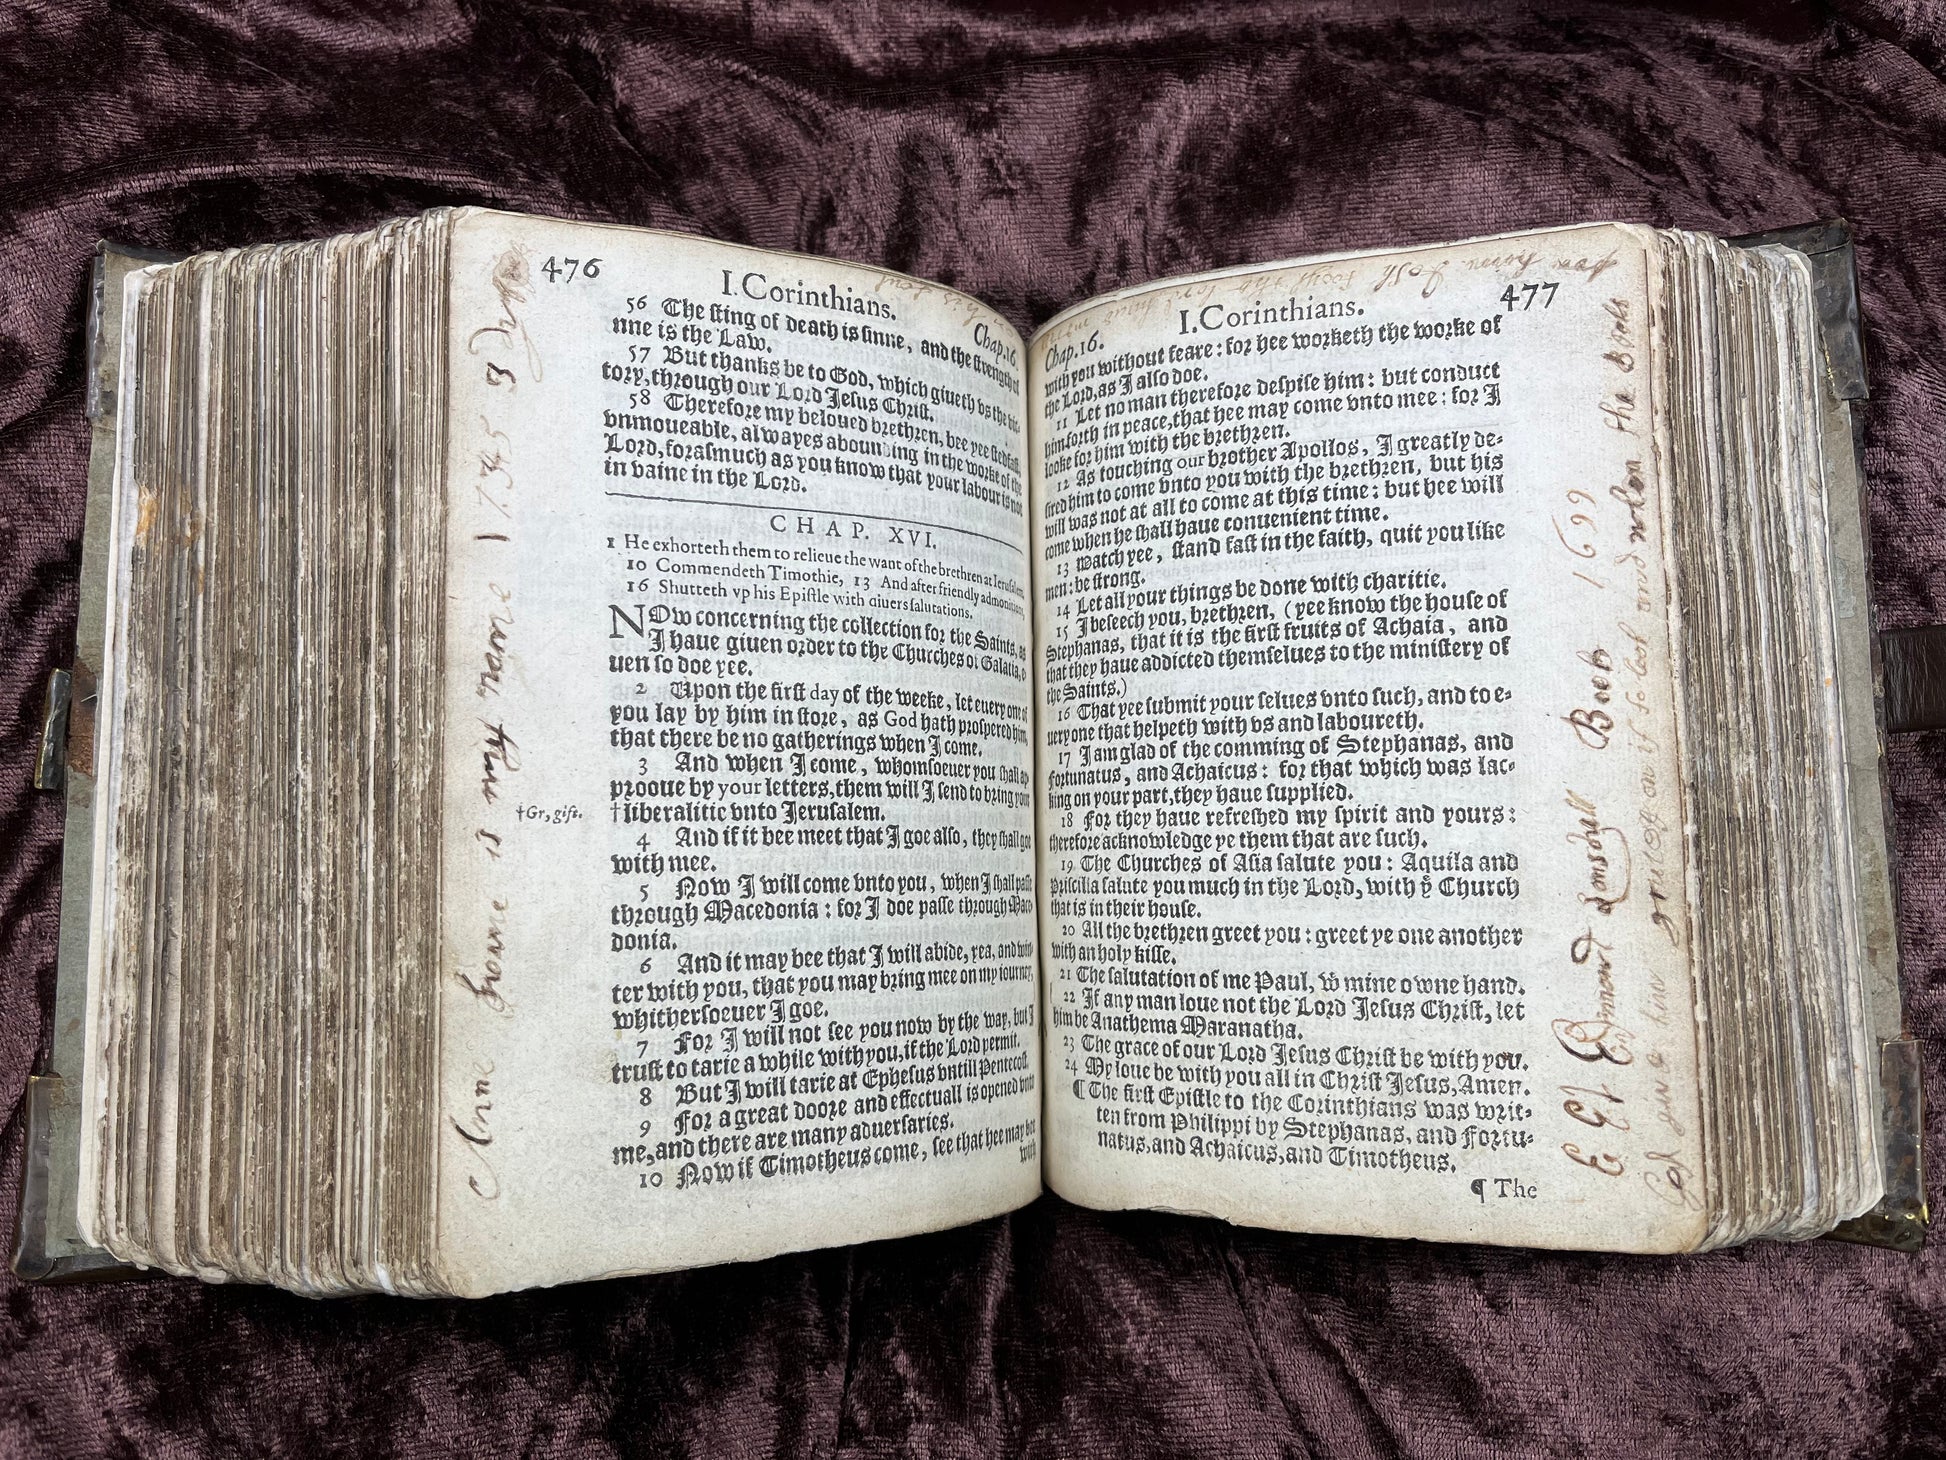 476
I. Corinthians.
Chap. 16.
56 The sting of death is sinne, and the strength of
nne is the Law.
57 But thanks be to God, which giueth vs the vic-
tory, through our Lord Jesus Christ.
58 Therefore my beloued brethren, bee yee stedfast,
vnmoueable, alwayes abounding in the worke of the
Lord, forasmuch as you know that your labour is not
in vaine in the Lord.
CHAP. XVI.
1 He exhorteth them to relieue the want of the brethren at Ierusalem,
10 Commendeth Timothie, 13 And after friendly admonitions,
16 Shutteth vp his Epistle with diuers salutations.
NOw concerning the collection for the Saints, as
I haue giuen order to the Churches of Galatia,
uen so doe yee.
2 Vpon the first day of the weeke, let euery one of
you lay by him in store, as God hath prospered him,
that there be no gatherings when I come.
3 And when I come, whomsoeuer you shall ap
prooue by your letters, them will I send to bring your
†Gr, gift.
†liberalitie vnto Jerusalem.
4 And if it bee meet that I goe also, they shall goe
with mee.
5 Now I will come vnto you, when I shall passe
through Macedonia: for I doe passe through Mace
donia.
6 And it may bee that I will abide, yea, and win-
ter with you, that you may bring mee on my iourney,
whithersoeuer I goe.
7 For I will not see you now by the way, but I
trust to tarie a while with you, if the Lord permit.
8 But I will tarie at Ephesus vntill Pentecost.
9 For a great doore and effectuall is opened vnto
me, and there are many aduersaries.
10 Now if Timotheus come, see that hee may bee
with
is my name 1735
477
I. Corinthians.
Chap. 16.
with you without feare: for hee worketh the worke of
the Lord, as I also doe.
11 Let no man therefore despise him: but conduct
him forth in peace, that hee may come vnto mee: for I
looke for him with the brethren.
12 As touching our brother Apollos, I greatly de-
sired him to come vnto you with the brethren, but his
will was not at all to come at this time: but hee will
come when he shall haue conuenient time.
13 Watch yee, stand fast in the faith, quit you like
men: be strong.
14 Let all your things be done with charitie.
15 I beseech you, brethren, (yee know the house of
Stephanas, that it is the first fruits of Achaia, and
that they haue addicted themselues to the ministery of
the Saints.)
16 That yee submit your selues vnto such, and to e-
uery one that helpeth with vs and laboureth.
17 I am glad of the comming of Stephanas, and
Fortunatus, and Achaicus: for that which was lac-
king on your part, they haue supplied.
18 For they haue refreshed my spirit and yours:
therefore acknowledge ye them that are such.
19 The Churches of Asia salute you: Aquila and
Priscilla salute you much in the Lord, with yͤ Church
that is in their house.
20 All the brethren greet you: greet ye one another
with an holy kisse.
21 The salutation of me Paul, wͭ mine owne hand.
22 If any man loue not the Lord Jesus Christ, let
him be Anathema Maranatha.
23 The grace of our Lord Jesus Christ be with you.
24 My loue be with you all in Christ Jesus, Amen.
¶ The first Epistle to the Corinthians was writ-
ten from Philippi by Stephanas, and Fortu-
natus, and Achaicus, and Timotheus.
¶ The
Book 1699
to look and when the Book